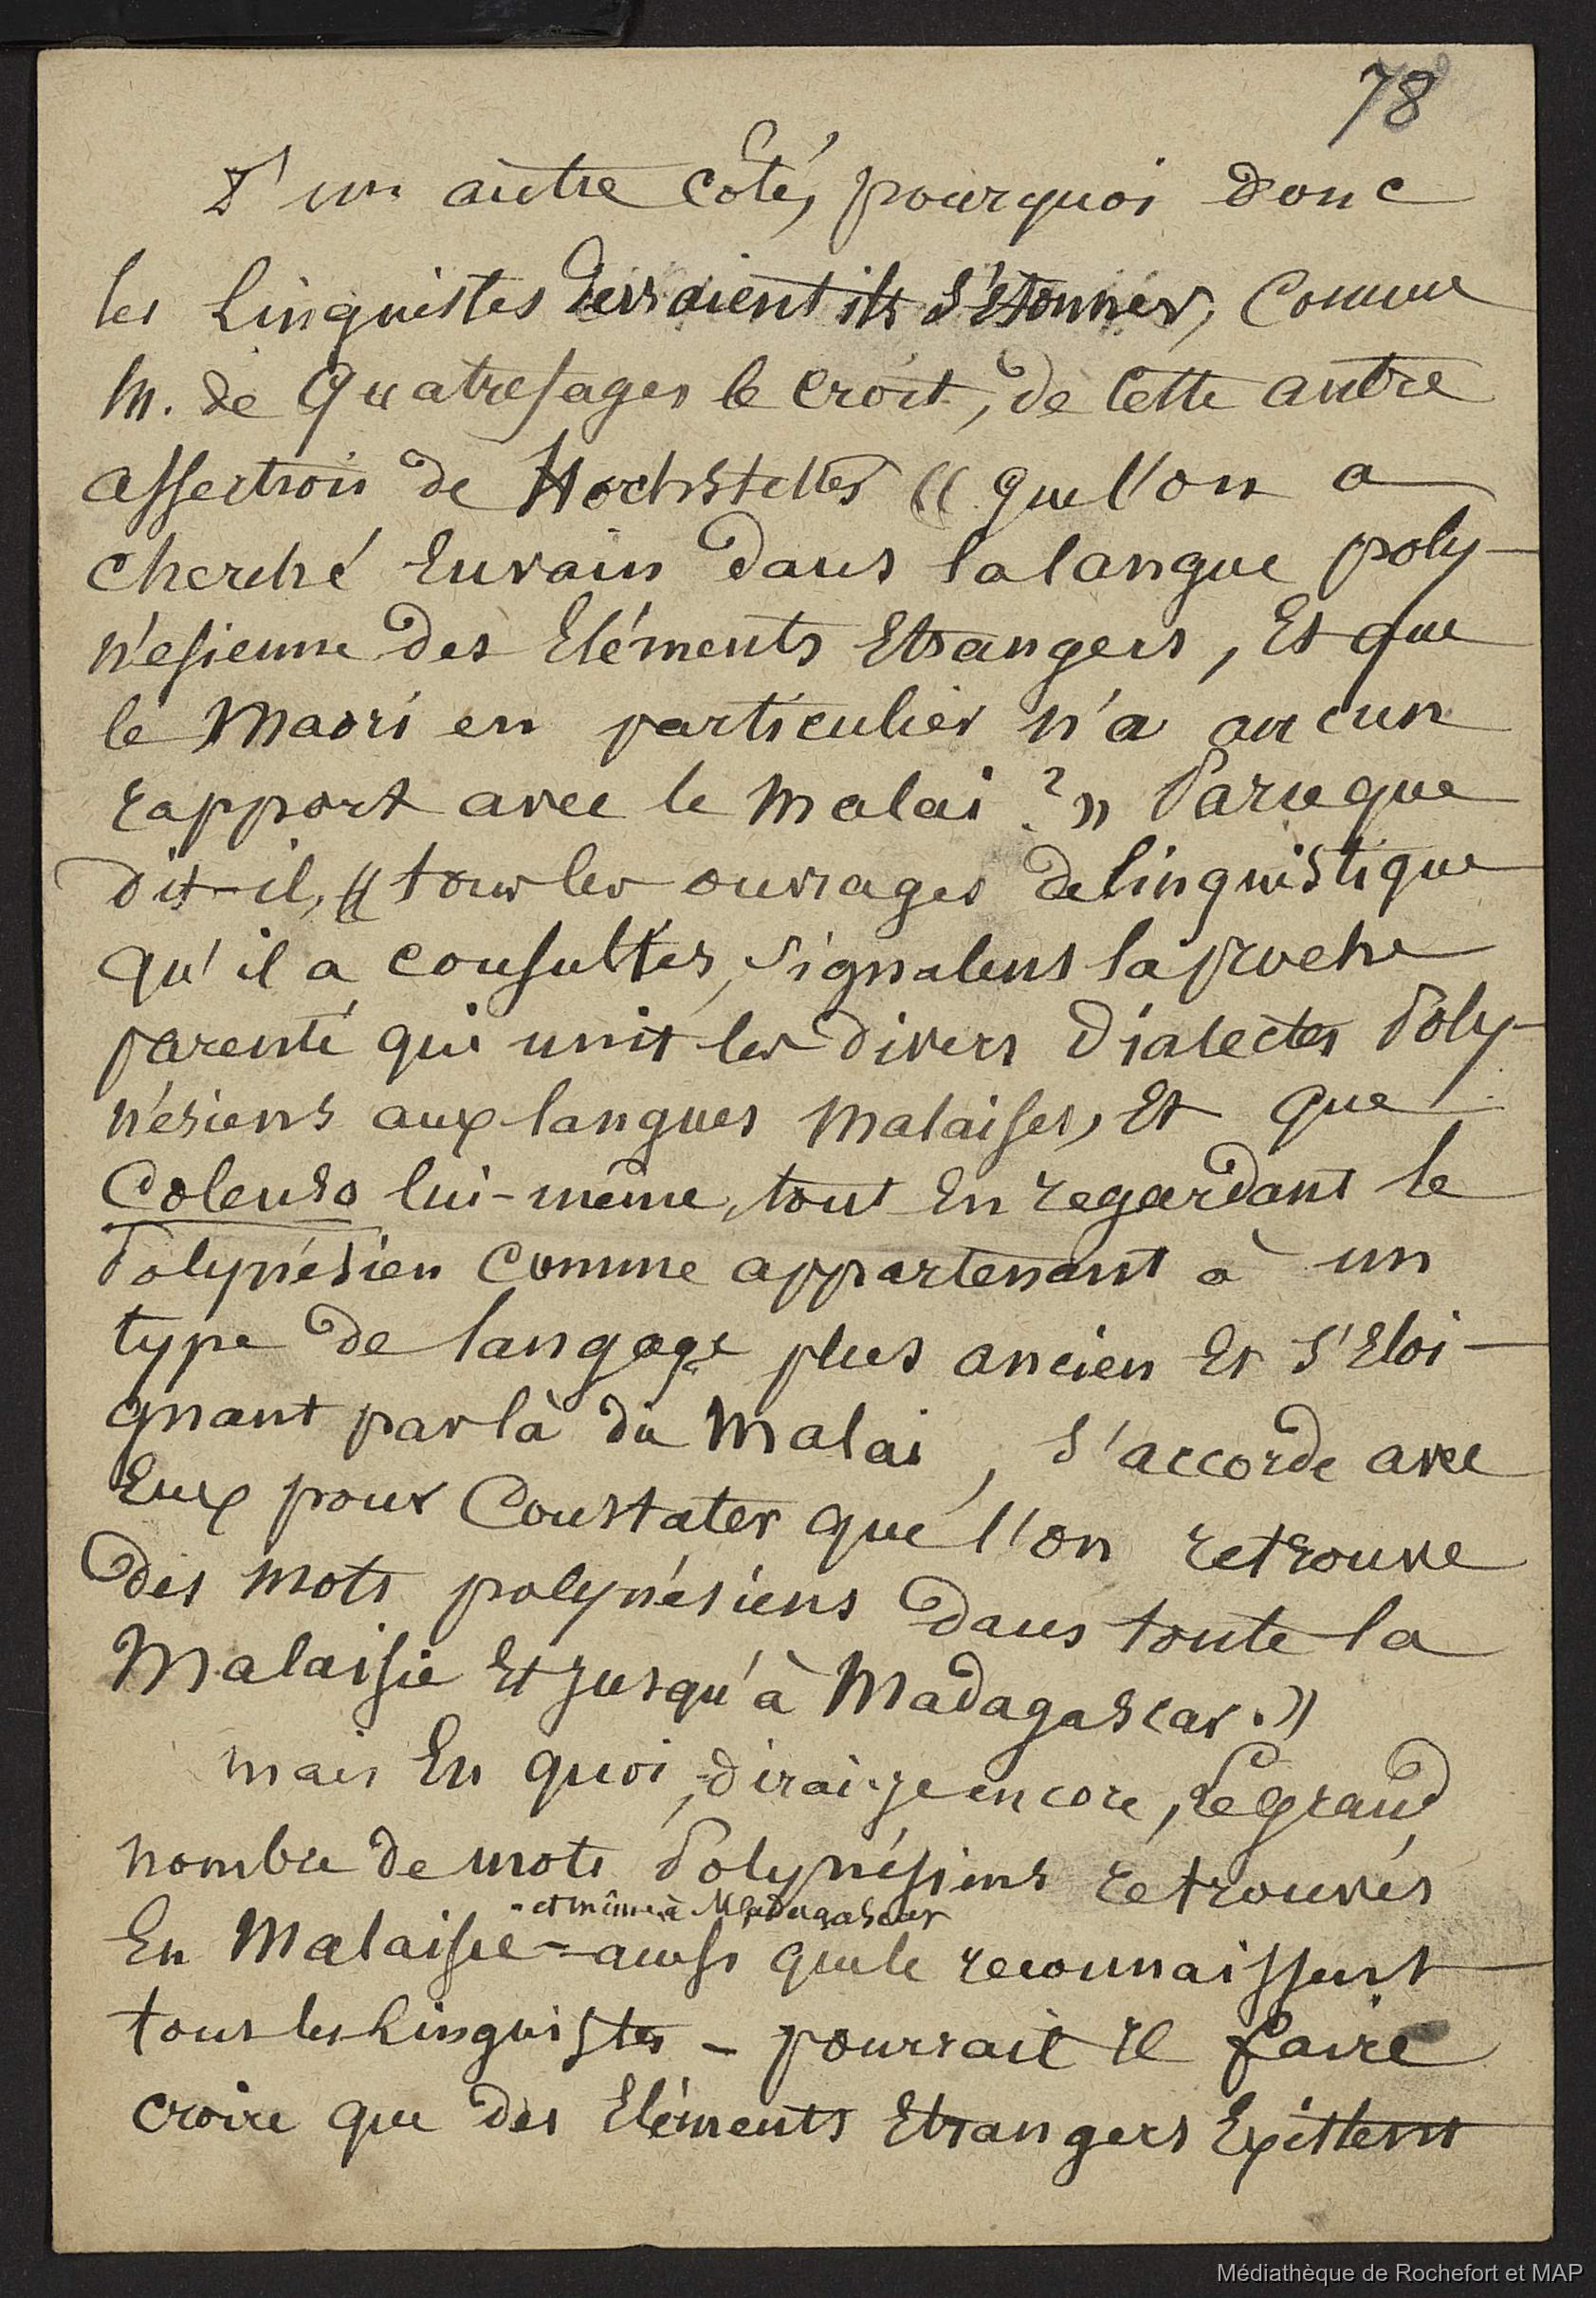 78
D'un autre coté, pourquoi donc
les Linguistes devraient ils s'étonner, comme
M. de Quatrefages le croit, de cette autre
assertion de Hochstetter « que l'on a
cherché envain dans la langue poly-
nésienne des Eléments Etrangers, Et que
le Maori en particulier n'a aucun
rapport avec le Malai ? » Parceque
dit-il, « tous les ouvrages de linguistique
qu'il a consultés, signalent la proche
parenté qui unit les divers Dialectes Poly-
nésiens aux langues Malaises, Et que
Colenso lui-même, tout En regardant le
Polynésien comme appartenant à un
type de langage plus ancien Et s'Eloi-
gnant par là du Malai, s'accorde avec
Eux pour Constater que l'on retrouve
des mots polynésiens dans toute la
Malaisie Et jusqu'à Madagascar. »
mais En quoi, dirai-je encore, le grand
nombre de mots Polynésiens retrouvés
- et même à Madagascar
En Malaisie - ainsi que le reconnaissent
tous les Linguistes - pourrait il faire
croire que des Eléments Etrangers Existent
Médiathèque de Rochefort et MAP